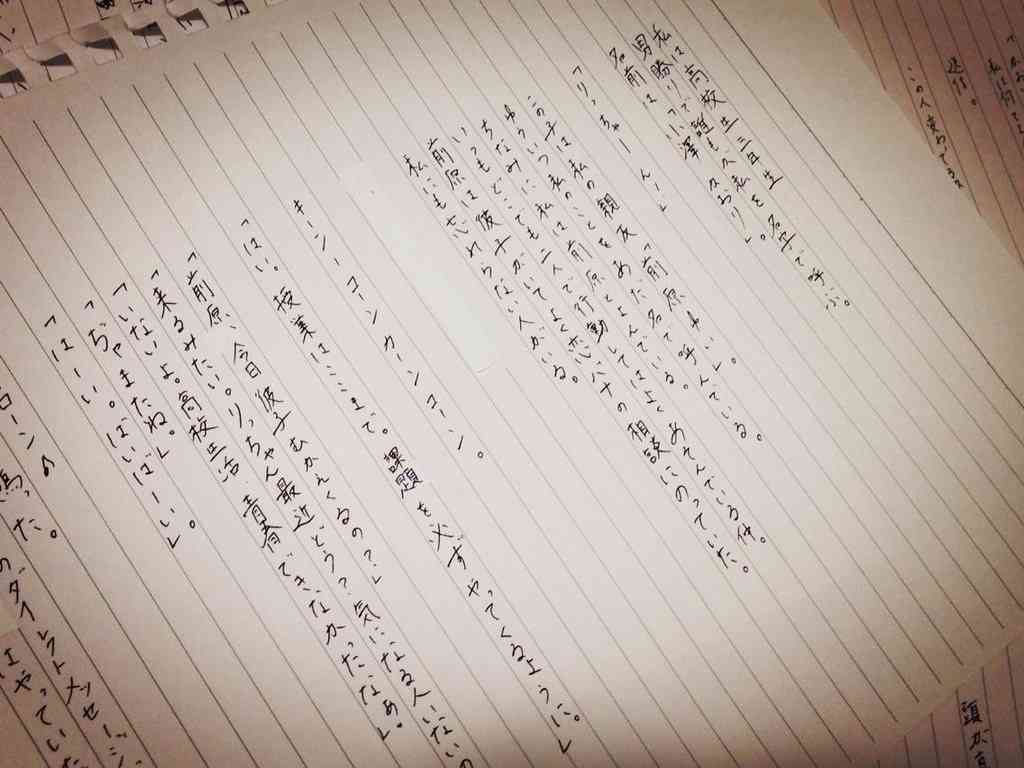 私は高校生三年生
男勝りで誰もが私を名字で呼ぶ。
名前は「小澤 かおり」。
「りっちゃーんー」
この子は私の親友「前原ゆい」。
ゆういつ私のことをあだ名で呼んでいる。
ちなみに私は前原とよんでいる。
いつもどこでも二人で行動してはよくあそんでいる仲。
前原は彼子がいてよく恋バナの相談にのっていた。
私にも忘れらない人がいる。
キーンーコーンカーンコーン。
「はい。授業はここまで。課題を必ずやってくるように。」
「前原、今日彼子むかえくるの?」
「来るみたい。りっちゃん最近どう?気になる人いないの
「いないよ。高校生活、青春できなかったなぁ。」
「ぢゃまたね。」
「はーい。ばいばーい」。
ローン♪
鳴った。
のダイレクトメッセージ
はやっていた
この人変わってるな
返信。
頭が